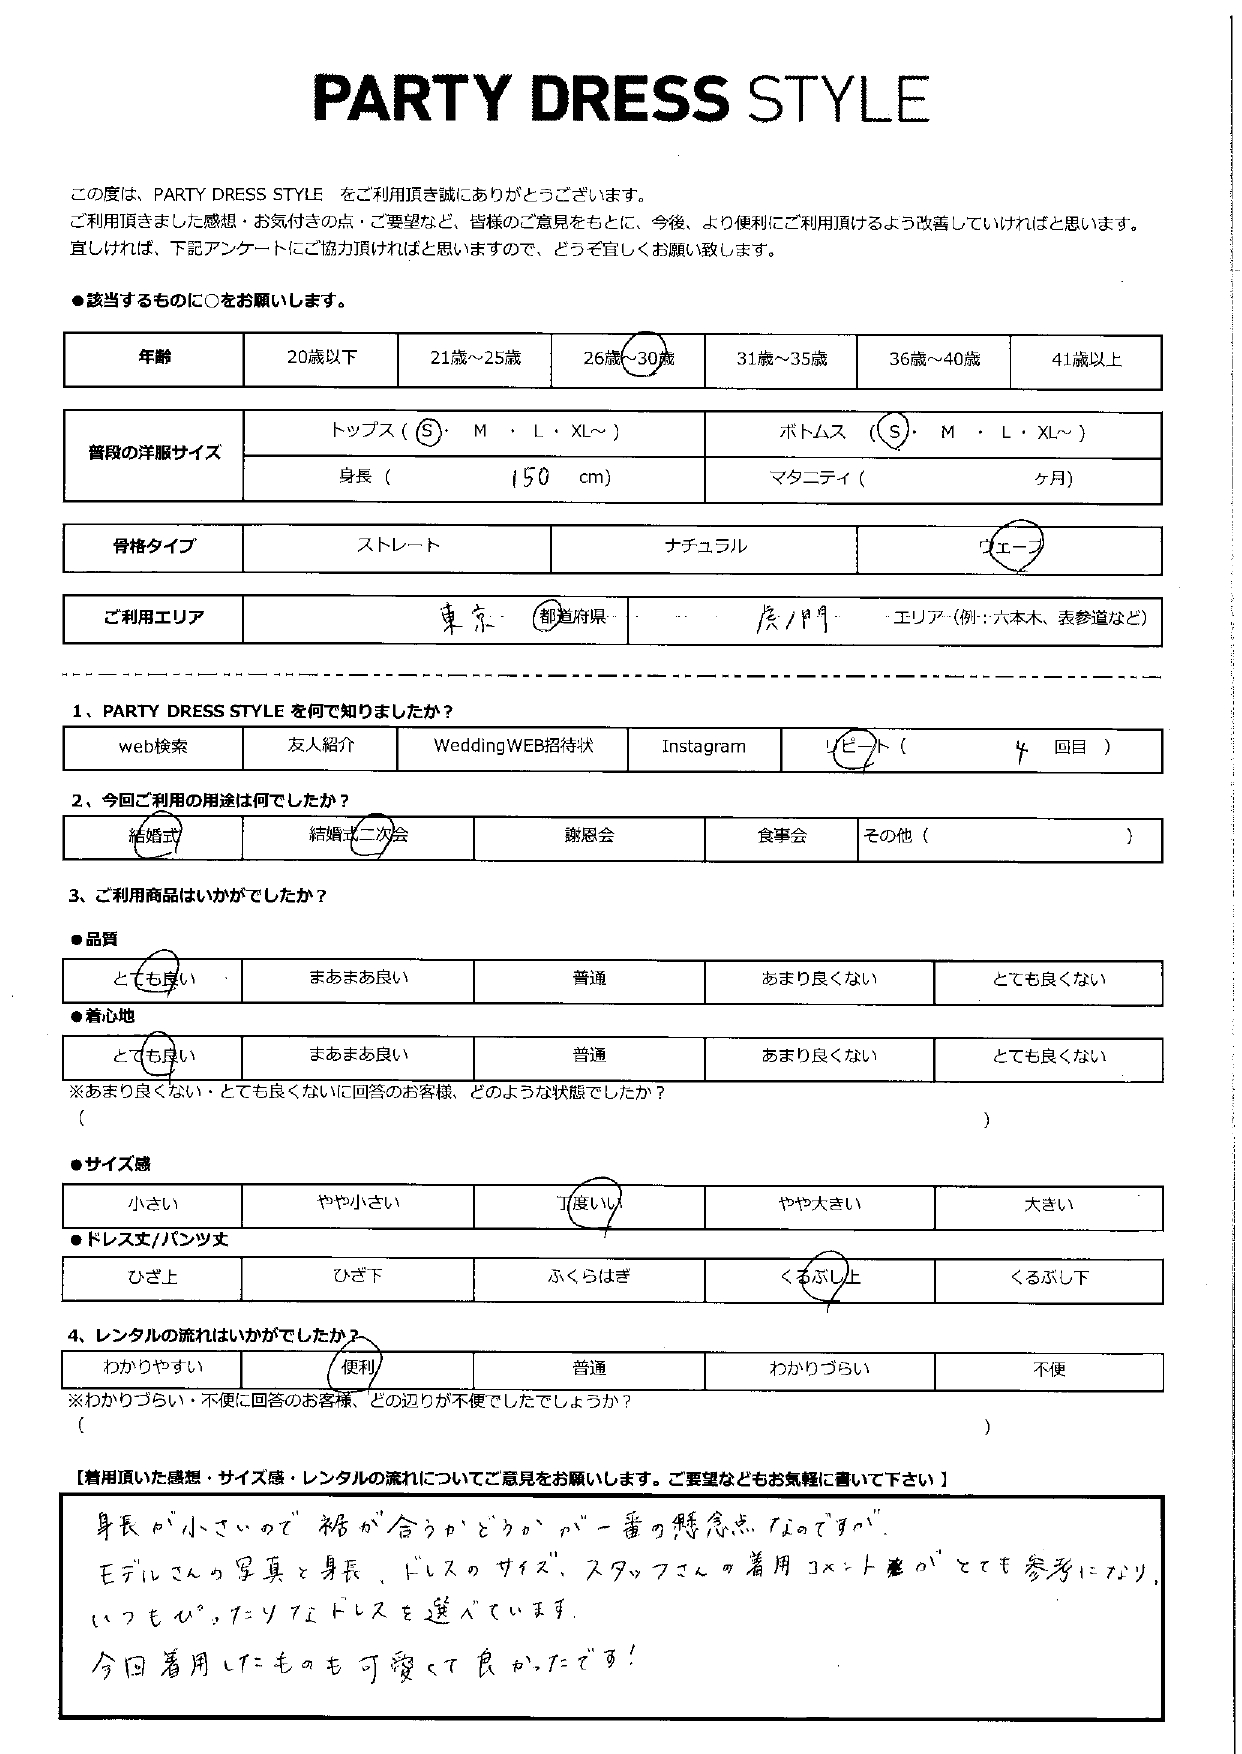 PARTY DRESS STYLE
この度は、PARTY DRESS STYLE をご利用頂き誠にありがとうございます。
ご利用頂きました感想・お気付きの点・ご要望など、皆様のご意見をもとに、今後、より便利にご利用頂けるよう改善していければと思います。
宜しければ、下記アンケートにご協力頂ければと思いますので、どうぞ宜しくお願い致します。
●該当するものに○をお願いします。
年齢 20歳以下 21歳～25歳 26歳～30歳 31歳～35歳 36歳～40歳 41歳以上
普段の洋服サイズ トップス ( S ・ M ・ L ・ XL～ ) ボトムス ( S ・ M ・ L ・ XL～ )
身長 ( 150 cm) マタニティ ( ヶ月)
骨格タイプ ストレート ナチュラル ウェーブ
ご利用エリア 東京 都道府県 虎ノ門 エリア (例：六本木、表参道など)
1、PARTY DRESS STYLE を何で知りましたか？
web検索 友人紹介 WeddingWEB招待状 Instagram リピート ( 4 回目 )
2、今回ご利用の用途は何でしたか？
結婚式 結婚式二次会 謝恩会 食事会 その他 ( )
3、ご利用商品はいかがでしたか？
●品質
とても良い まあまあ良い 普通 あまり良くない とても良くない
●着心地
とても良い まあまあ良い 普通 あまり良くない とても良くない
※あまり良くない・とても良くないに回答のお客様、どのような状態でしたか？
( )
●サイズ感
小さい やや小さい 丁度いい やや大きい 大きい
●ドレス丈/パンツ丈
ひざ上 ひざ下 ふくらはぎ くるぶし上 くるぶし下
4、レンタルの流れはいかがでしたか？
わかりやすい 便利 普通 わかりづらい 不便
※わかりづらい・不便に回答のお客様、どの辺りが不便でしたでしょうか？
( )
【着用頂いた感想・サイズ感・レンタルの流れについてご意見をお願いします。ご要望などもお気軽に書いて下さい 】
身長が小さいので 裾が合うかどうかが一番の懸念点なのですが、
モデルさんの写真と身長、ドレスのサイズ、スタッフさんの着用コメントがとても参考になり、
いつもぴったりなドレスを選べています。
今回着用したものも可愛くて良かったです！